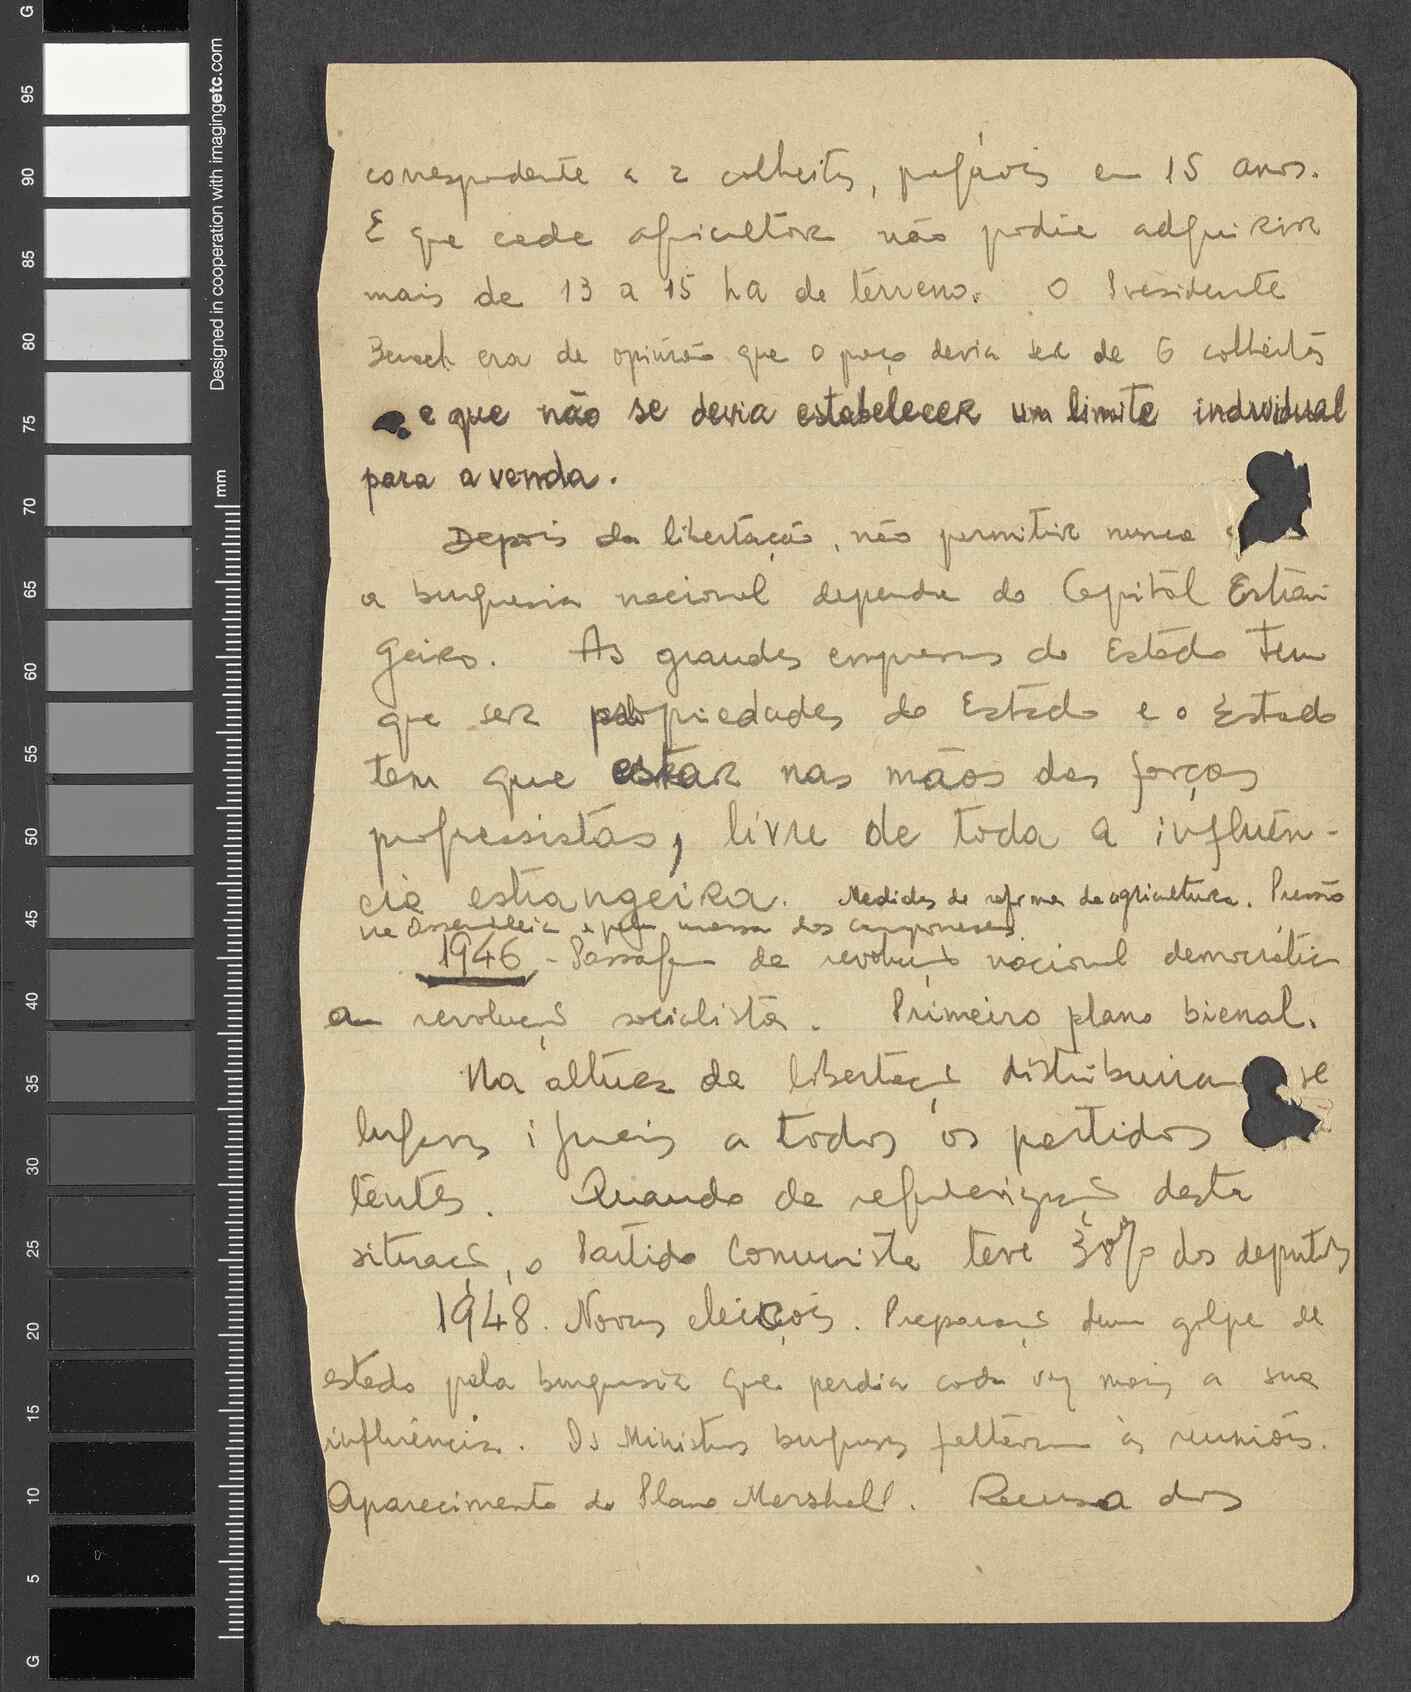 correspondente a 2 colheitas, pagáveis em 15 anos.
E que cada agricultor não podia adquirir
mais de 13 a 15 ha de terreno. O Presidente
era de opinião que o preço devia ser de 6 colheitas
e que não se devia estabelecer um limite individual
para a venda.
Depois da libertação, não permitir nunca
a burguesia nacional depender do Capital Estran
geiro. As grandes empresas do Estado tem
que ser propriedades do Estado e o Estado
tem que estar nas mãos das forças
progressistas, livre de toda a influên-
cia estrangeira. Medidas de reforma da agricultura. Pressão
na Assembleia e pela massa dos camponeses.
1946 - Passagem da revolução nacional democrática
a revolução socialista. Primeiro plano bienal.
Na altura da libertação distribuiram se
lugares iguais a todos os partidos
tentes. Quando da regularização desta
situação, o Partido Comunista teve 38% dos deputados
1948. Novas eleições. Preparação dum golpe de
estado pela burguesia que perdia cada vez mais a sua
influência. Os Ministros burgueses faltaram às reuniões.
Aparecimento do Plano Marshall. Recusa dos
G
95
90
85
80
75
70
65
60
55
50
45
40
35
30
25
20
15
10
5
G
Designed in cooperation with imagingetc.com
mm